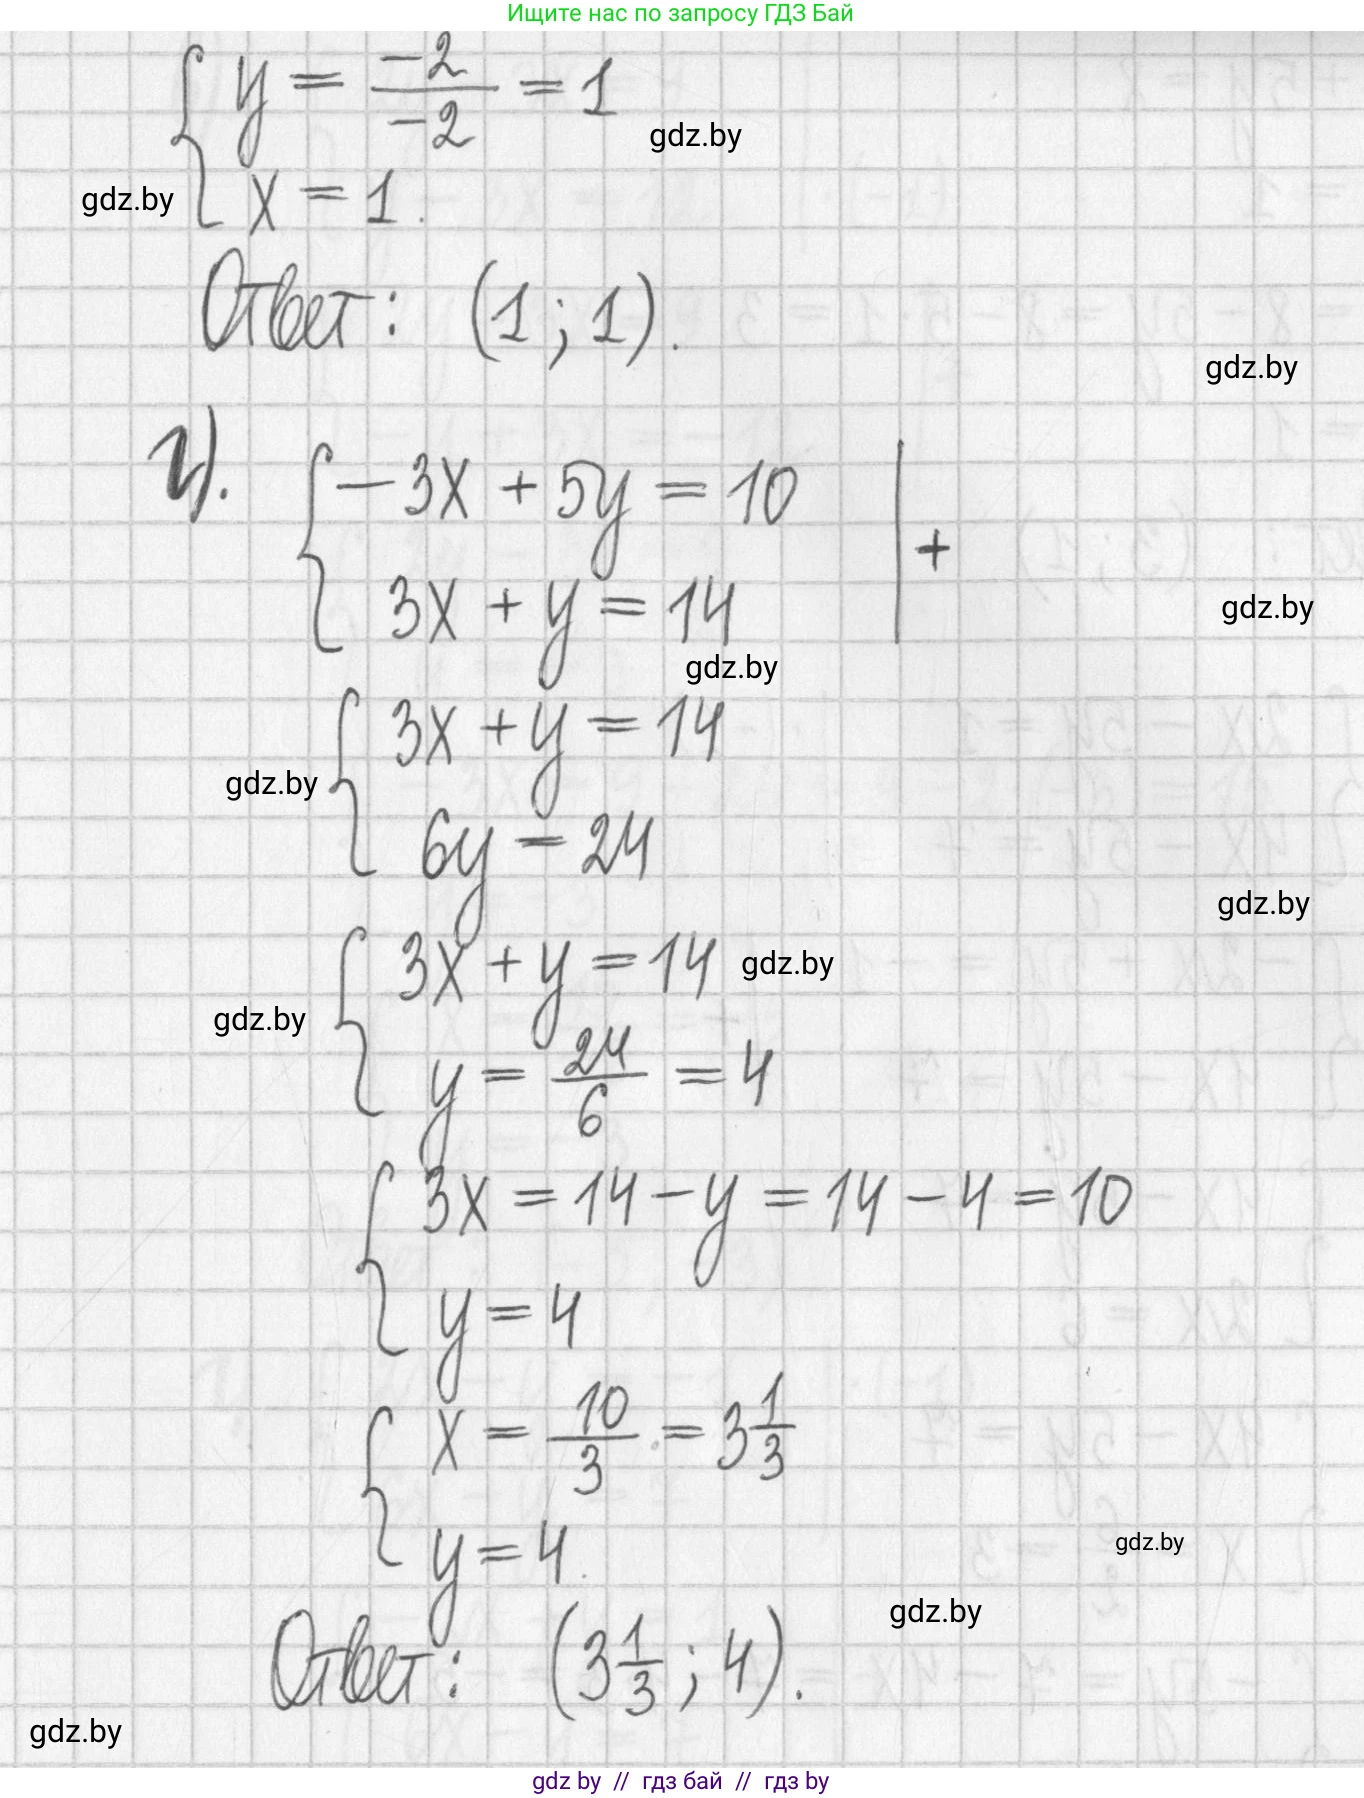 Ищите нас по запросу ГДЗ Бай
y = -2/-2 = 1
gdz.by
gdz.by
x = 1.
Ответ: (1; 1).
gdz.by
г).
-3x + 5y = 10
+
3x + y = 14
gdz.by
gdz.by
3x + y = 14
gdz.by
6y = 24
gdz.by
3x + y = 14
gdz.by
gdz.by
y = 24/6 = 4
3x = 14 - y = 14 - 4 = 10
y = 4
x = 10/3 = 3 1/3
y = 4.
gdz.by
gdz.by
Ответ: (3 1/3; 4).
gdz.by
gdz by // гдз бай // гдз by